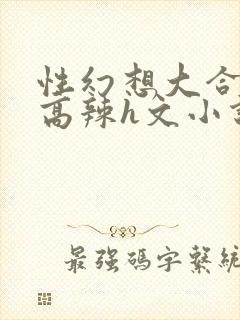 性幻想大合
高辣h文小
最强碼字繫統